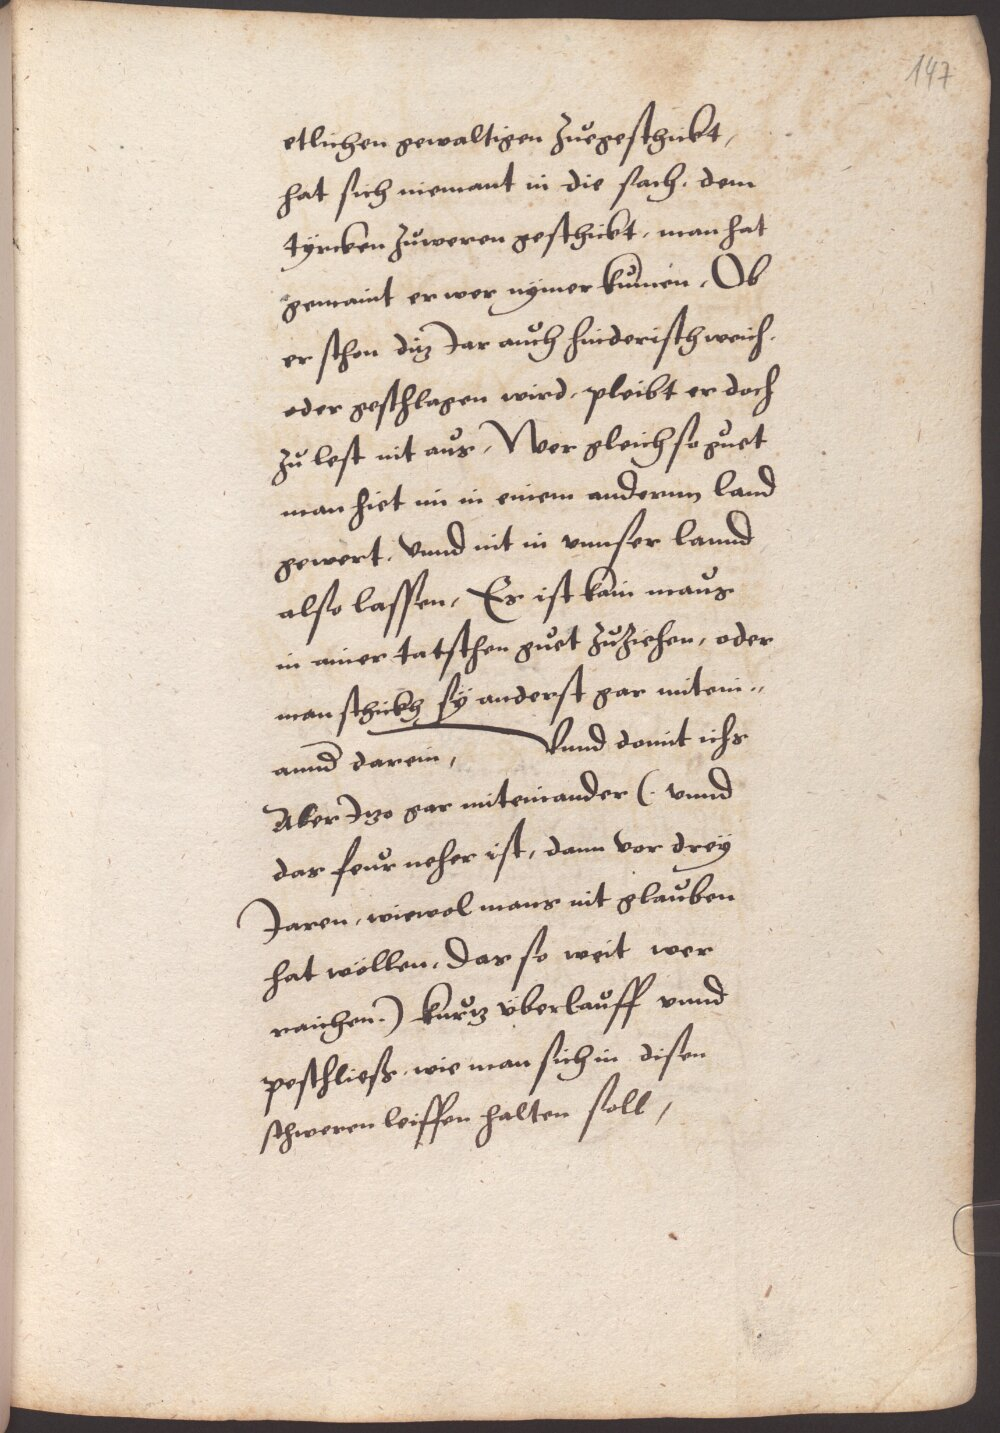 147
etlichen gewaltigen Zuegeschickt,
hat sich niemant in die sach. dem
Tÿrcken Zuweren geschickt. man hat
gemaint er wer nÿmer kumen. Ob
er schon ditz Jar auch hinderisch weich.
oder geschlagen wird. pleibt er doch
Zu lest nit aus, Wer gleich so guet
man hiet in in einem andernn land
gewert. vnnd nit in vnnser lannd
also lassen, Es ist kain maus
in ainer tatschen guet Zu Ziehen, oder
man schickh sÿ anderst gar mitein=
annd darein, Vnnd domit ichs
Aber Itzo gar miteinander (. vnnd
das feur neher ist, dann vor dreÿ
Jaren, wiewol mans nit glauben
hat wöllen. Das so weit wer
raichen.) kurtz vberlauff vnnd
peschliess. wie man sich in disen
schweren leiffen halten soll,